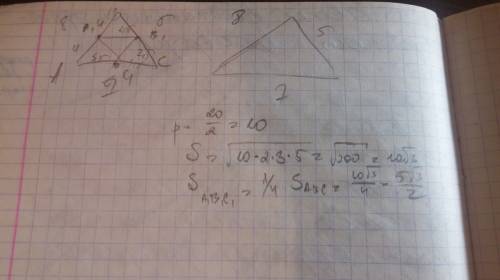 8 5
A₁ 4 B₁
4
A C
7
8 5
7
p = 20/2 = 10
S = √10·2·3·5 = √300 = 10√3
S A₁B₁C₁ = 1/4 S ABC = 10√3/4 = 5√3/2